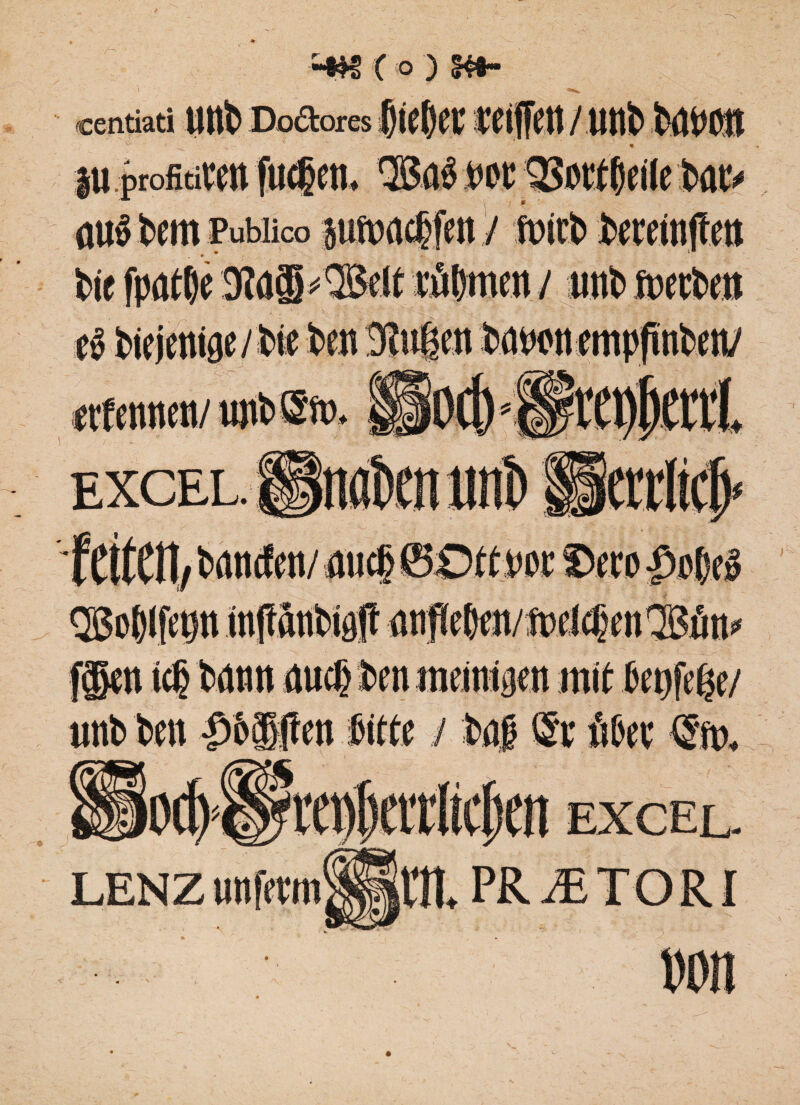 ( o )
centiati und Doctores hieher reissen / und davon
zu profitiren suchen. Was vor Vortheile dar⸗
aus dem Publico zuwachsen / wird dereinsten
die spathe Nach⸗Welt rühmen / und werden
es diejenige / die den Nutzen davon empfinden/
erkennen/ und Ew. Hoch⸗Freyherrl.
EXCEL. Gnaden und Herrlich⸗
keiten, dancken/ auch GOtt vor Dero Hohes
Wohlseyn inständigst anflehen/ welchen Wün⸗
schen ich dann auch den meinigen mit beysetze/
und den Höchsten bitte / daß Er über Ew.
Hoch⸗Freyherrlichen EXCEL-
LENZ unserm Hrn. PRÆTORI
von